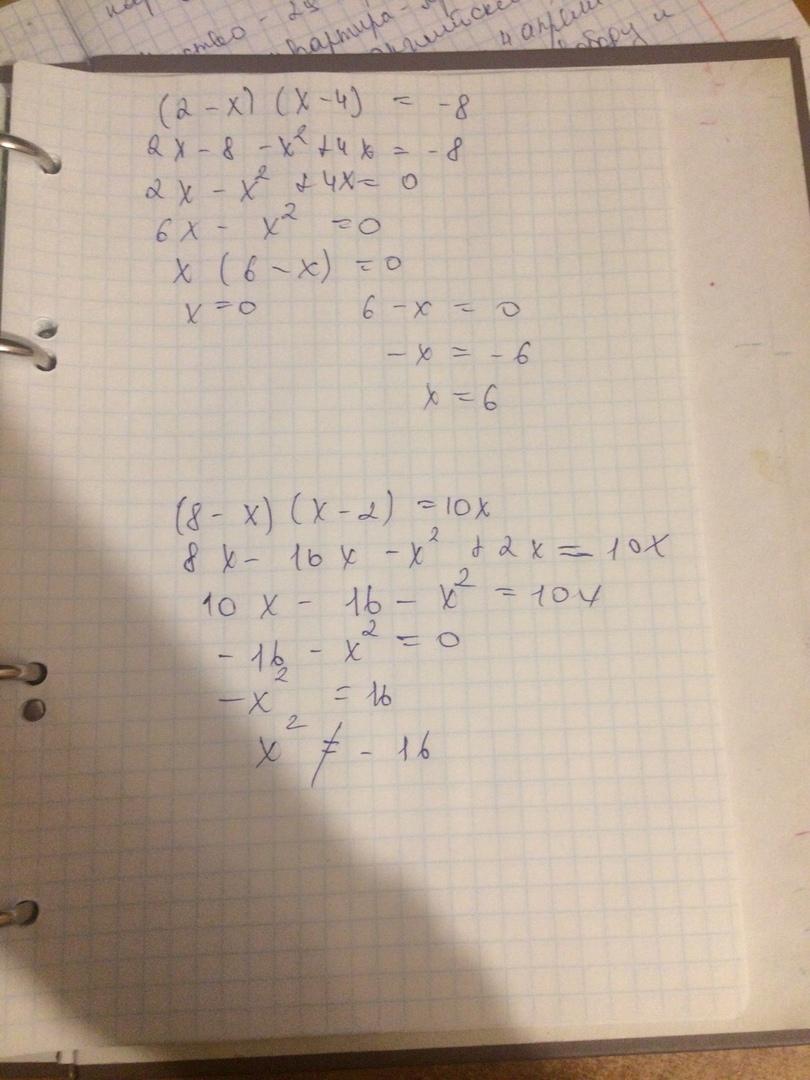 - 28
кварти
английско
4 апреля
(2 - x) (x - 4) = -8
2x - 8 - x² + 4x = -8
2x - x² + 4x = 0
6x - x² = 0
x (6 - x) = 0
x = 0 6 - x = 0
- x = - 6
x = 6
(8 - x) (x - 2) = 10x
8x - 16x - x² + 2x = 10x
10x - 16 - x² = 10x
- 16 - x² = 0
- x² = 16
x² ≠ - 16